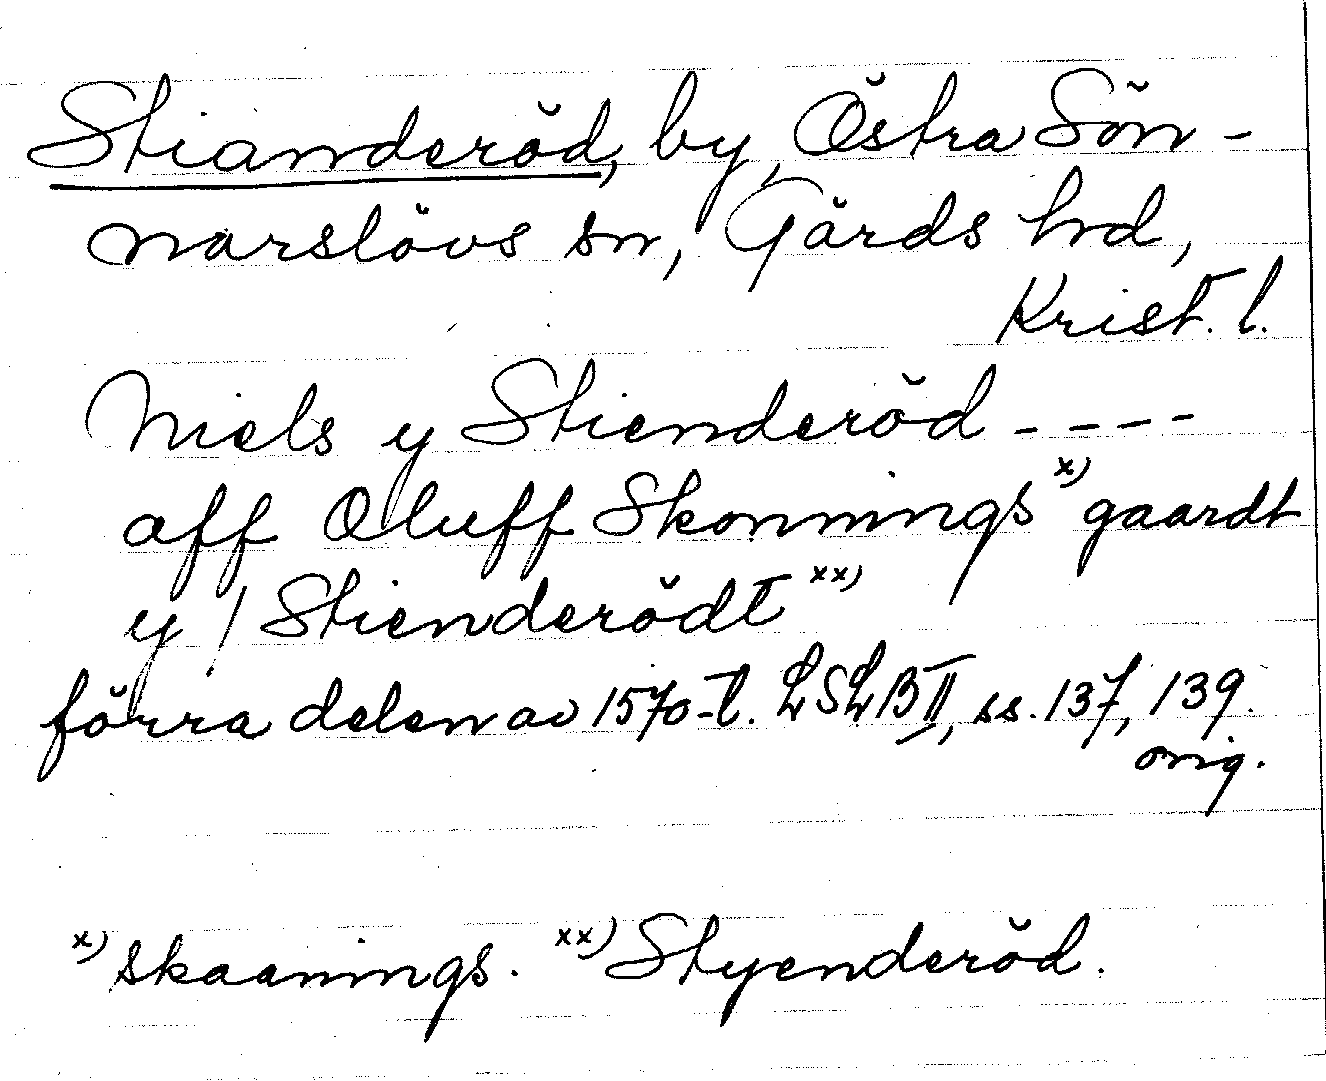 Stianderöd, by, Östra Sön-
narslövs sn, Gärds hrd,
Krist. l.
Niels y Stienderöd ----
aff Oluff Skonnings x) gaardt
y / Stienderödt xx)
förra delen av 1570-t. LSLB II, ss. 137, 139.
orig.
x) skaanings. xx) Styenderöd.